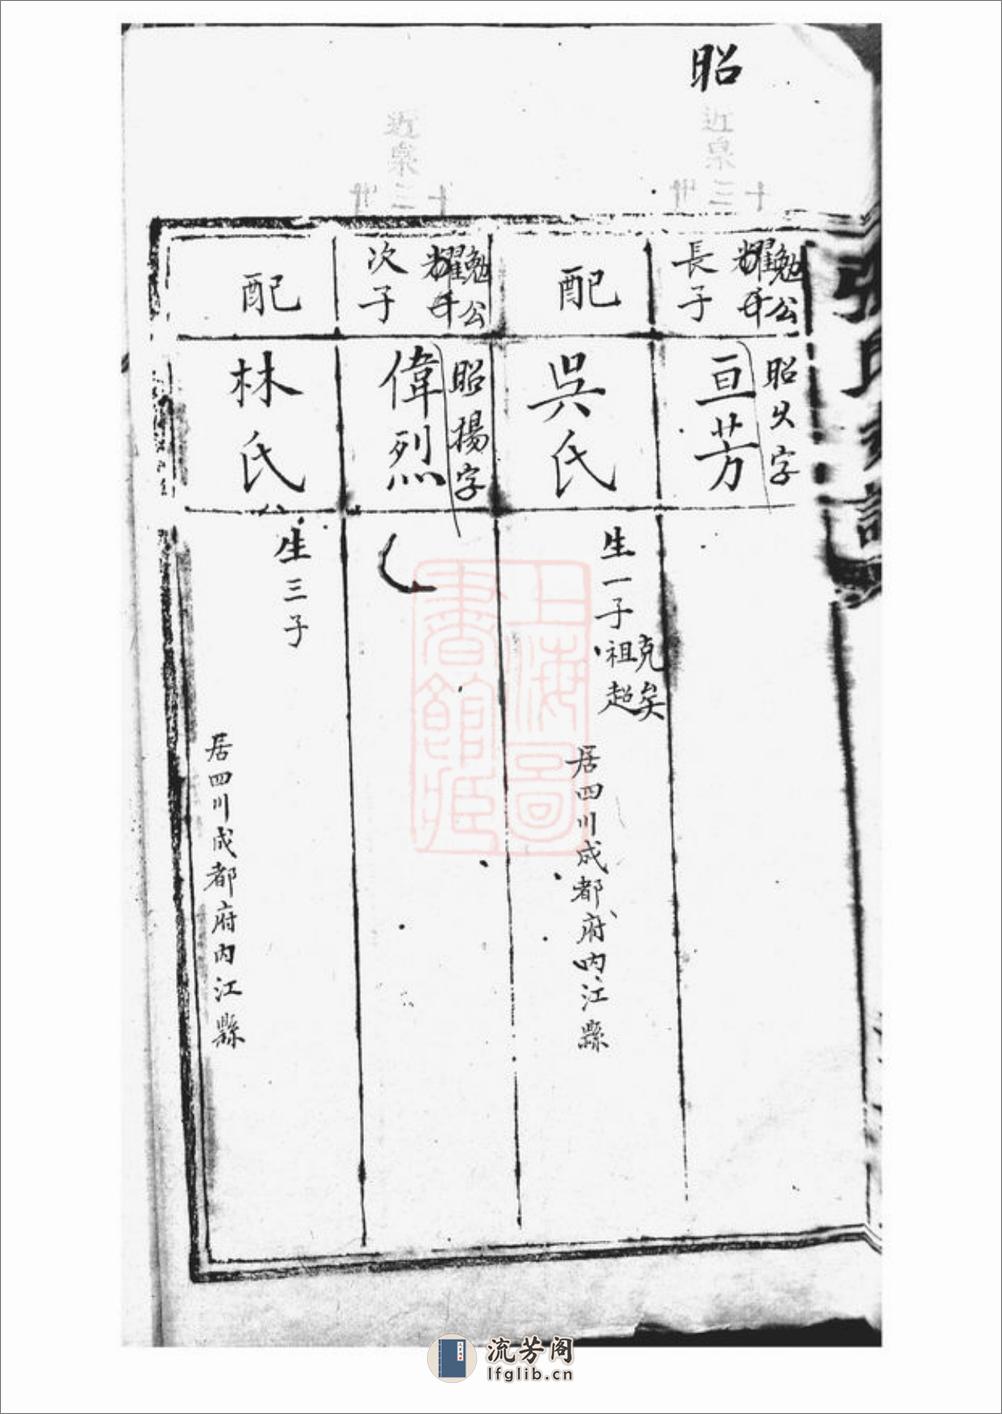 昭
近泉
十三世
勉公
耀千
長子
昭火字
亘芳
配
吳氏
生一子
克矣
祖趙
居四川成都府内江縣
近泉
十三世
勉公
耀千
次子
昭揚字
偉烈
配
林氏
生三子
居四川成都府内江縣
上海圖
書館藏
流芳阁
lfglib.cn